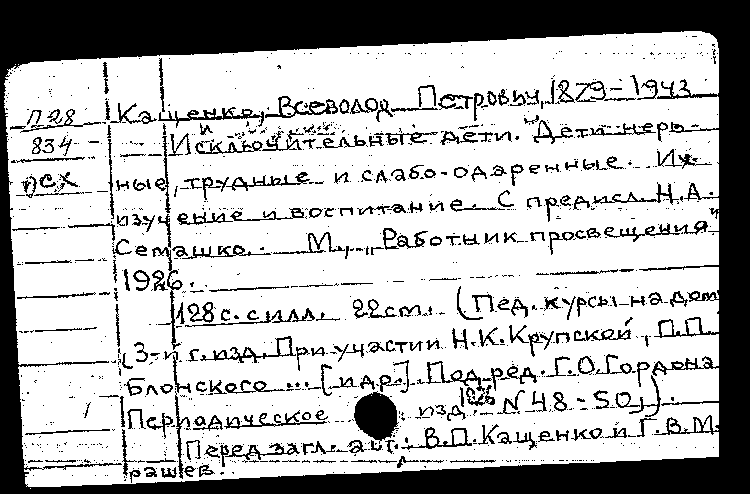 П28 Кащенко, Всеволод Петрович, 1879-1943
834 - Исключительные дети. Дети нерв-
ПСХ ные, трудные и слабо-одаренные. Их
изучение и воспитание. С предисл. Н.А.
Семашко. М., „Работник просвещения"
1926.
128 с. с илл. 22 ст. (Пед. курсы на дому
(3-й г. изд. При участии Н.К.Крупской, П.П.
Блонского ... [и др.]. Под ред. Г.О.Гордона
1 Периодическое изд. 1926 N 48-50,)).
Перед загл. авт.: В.П.Кащенко и Г.В.М
рашев.